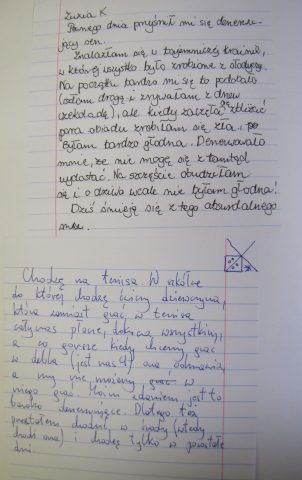 Zuzia K
Pewnego dnia przyśnił mi się denerwu-
jący sen.
Znalazłam się w tajemniczej krainie,
w której wszystko było zrobione z słodyczy.
Na początku bardzo mi się to podobało
(łodam drogę i zrywałam z drzew
czekoladę), ale kiedy zaczęła się zbliżać
pora obiadu zrobiłam się zła, po
byłam bardzo głodna. Denerwowało
mnie, że nie mogę się z tamtąd
wydostać. Na szczęście obudziłam
się i o dziwo wcale nie byłam głodna!
Dziś śmieję się z tego absurdalnego
snu.
Chodzę na tenisa. W szkółce
do której chodzę ćwiczy dziewczyna,
która zamiast grać w tenisa
cały czas płacze, dokucza wszystkim,
a co gorsze kiedy chcemy grać
w debla (jest nas 4) ona odmawia,
a my nie możemy grać w
niego grać. Moim zdaniem jest to
bardzo denerwujące. Dlatego też
przestałem chodzić w środy (wtedy
chodzi ona) i chodzę tylko w pozostałe
dni.